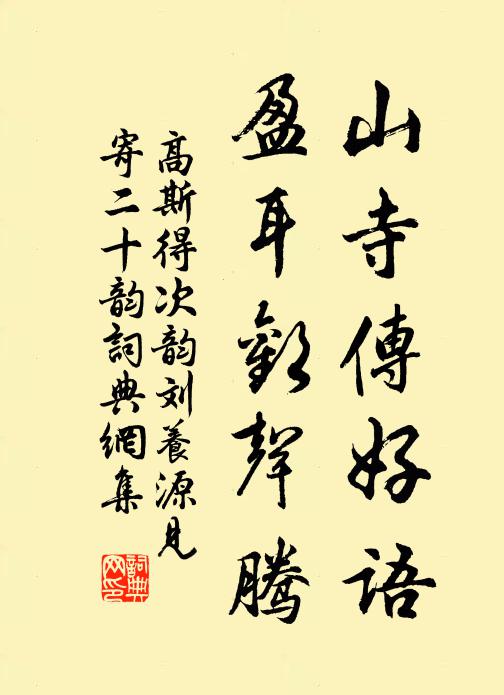 山寺傳好語
盈耳歡聲騰
高斯得次韵刘養源見
寄二十韵詞典網集
詞典
网印